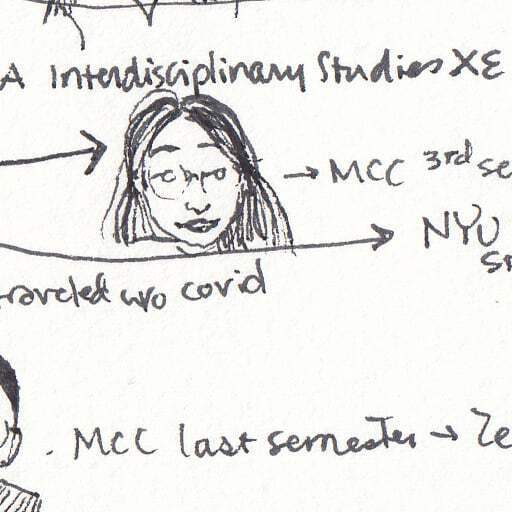 A Interdisciplinary Studies XE
→ MCC 3rd se
NYU
traveled w/o covid
. MCC last semester → Ze